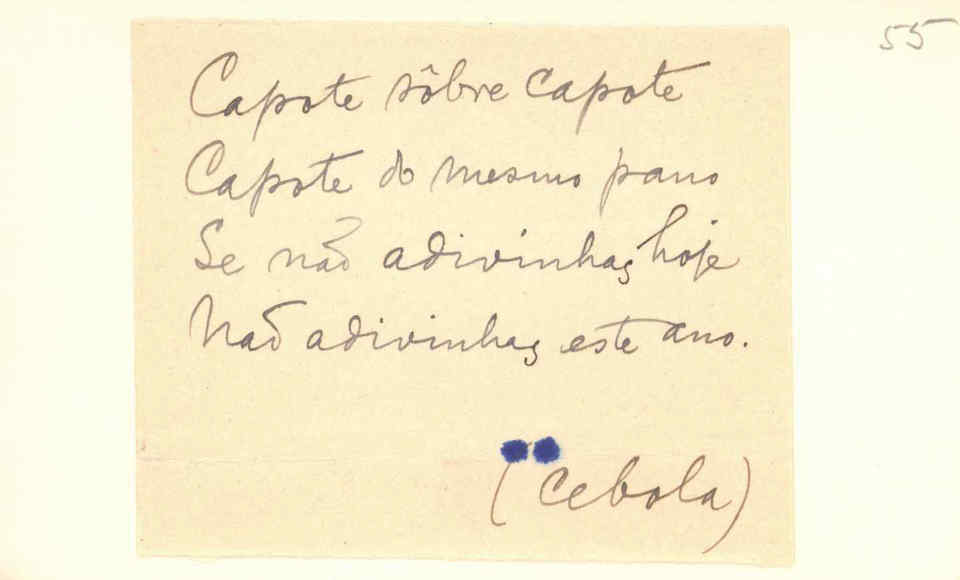 55
Capote sôbre capote
Capote do mesmo pano
Se não adivinhas hoje
Não adivinhas este ano.
(cebola)